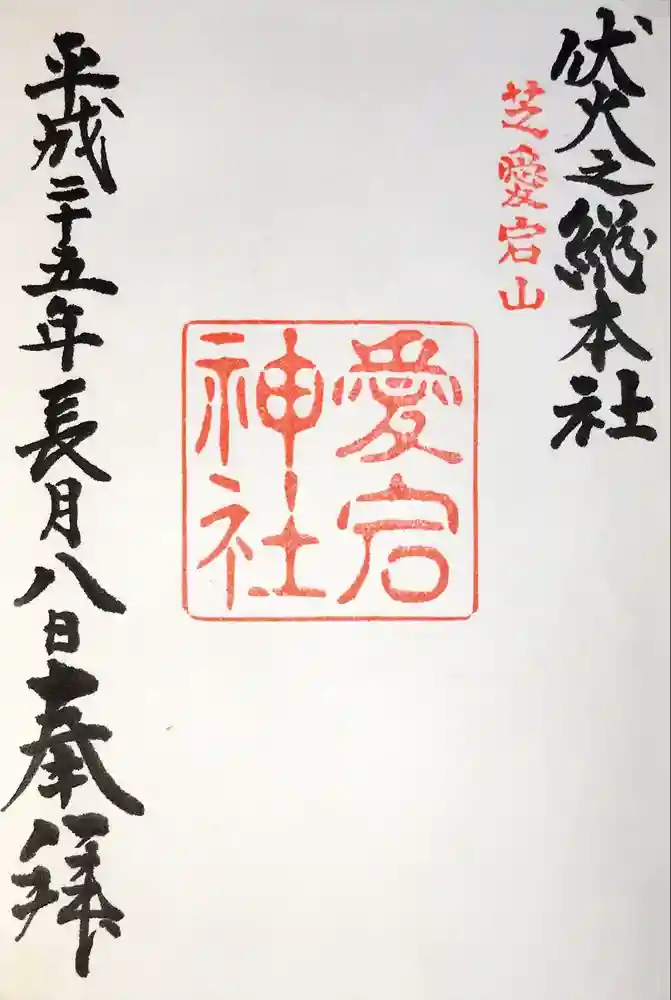 伏火之総本社
芝愛宕山
愛宕
神社
平成二十五年長月八日奉拝